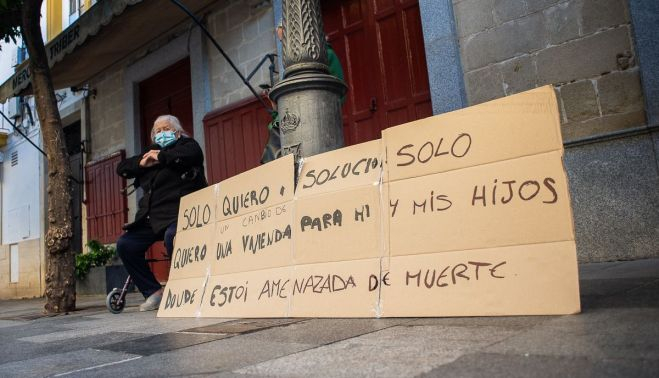 MERC TRIBER
SOLO QUIERO SOLUCIO SOLO
UN CAMBIO DE
QUIERO UNA VIVIENDA PARA MI Y MIS HIJOS
DOUDE ESTOI AMENAZADA DE MUERTE.